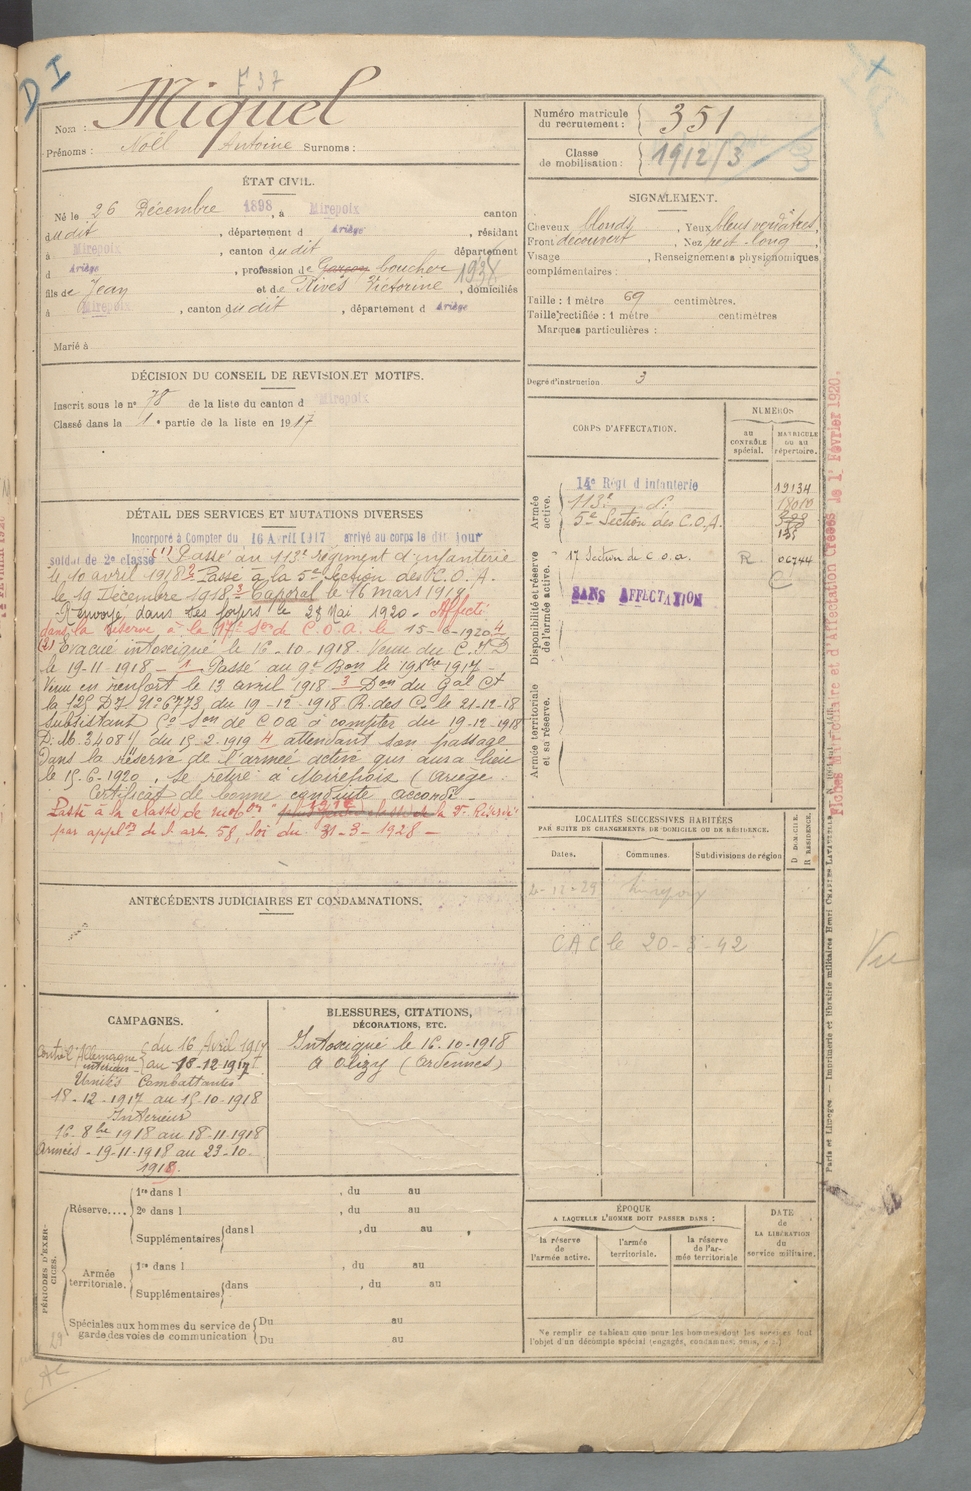 D I
F 37
Nom : Miquel
Prénoms : Noël Antoine Surnoms :
ÉTAT CIVIL.
Né le 26 Décembre 1898, à Mirepoix canton
dudit, département d Ariège, résidant
à Mirepoix, canton dudit département
d Ariège, profession de Garçon boucher 1938
fils de Jean et de Rives Victorine, domiciliés
à Mirepoix, canton dudit, département d Ariège
Marié à
DÉCISION DU CONSEIL DE REVISION ET MOTIFS.
Inscrit sous le n° 78 de la liste du canton d Mirepoix
Classé dans la 1e partie de la liste en 1917
DÉTAIL DES SERVICES ET MUTATIONS DIVERSES
Incorporé à Compter du 16 Avril 1917 arrivé au corps le dit jour
soldat de 2e classe (1) Passé au 113e régiment d'infanterie
le 10 avril 1918 2 Passé à la 5e Section des C.O.A.
le 19 Décembre 1918 3 Caporal le 16 mars 1919.
Renvoyé dans ses foyers le 28 Mai 1920 - Affecté
dans la réserve à la 17e Son de C.O.A. le 15-6-1920 4
(2) Evacué intoxiqué le 16-10-1918. Venu du C.I.D
le 19-11-1918 - 1 Passé au 9e Bon le 19 Xbre 1917 -
Venu en renfort le 13 avril 1918 3 Don du Gal Ct
la 125 DI N° 6773 du 19-12-1918 R. des Cs le 21-12-18
Subsistant 5e Son de COA à compter du 19-12-1918
D.M. 3408 du 15-2-1919 4 attendant son passage
dans la réserve de l'armée active qui aura lieu
le 15.6-1920, se retire à Mirepoix (Ariège.
Certificat de bonne conduite accordé -
Passé à la classe de mobon 1912 de la 2e Réserve
par applon de l'art. 58, loi du 31-3-1928 -
ANTÉCÉDENTS JUDICIAIRES ET CONDAMNATIONS.
CAMPAGNES.
Contre l'Allemagne du 16 Avril 1917
intérieur au 18-12-1917
Unités Combattantes
18-12-1917 au 15-10-1918
Intérieur
16-8bre 1918 au 18-11-1918
Armées - 19-11-1918 au 23-10-
1919.
BLESSURES, CITATIONS,
DÉCORATIONS, ETC.
Intoxiqué le 16-10-1918
à Olizy (Ardennes)
PÉRIODES D'EXERCICES.
Réserve....
1re dans l , du au
2e dans l , du au
Supplémentaires dans l , du au
Armée territoriale.
1re dans l , du au
Supplémentaires dans , du au
Spéciales aux hommes du service de garde des voies de communication
Du au
Du au
Numéro matricule du recrutement : 351
Classe de mobilisation : 1912/3
SIGNALEMENT.
Cheveux blonds, Yeux bleus verdâtres,
Front découvert, Nez rect. long,
Visage , Renseignements physiognomiques
complémentaires :
Taille : 1 mètre 69 centimètres.
Taille rectifiée : 1 mètre centimètres
Marques particulières :
Degré d'instruction. 3
CORPS D'AFFECTATION.
NUMÉROS
AU CONTRÔLE spécial.
MATRICULE OU AU répertoire.
Armée active.
14e Régt d'infanterie 19134
113e d° 18010
5e Section des C.O.A.
Disponibilité et réserve de l'armée active.
17 Section de C.O.A. R. 06744
C
SANS AFFECTATION
Armée territoriale et sa réserve.
LOCALITÉS SUCCESSIVES HABITÉES
PAR SUITE DE CHANGEMENTS DE DOMICILE OU DE RÉSIDENCE.
Dates. Communes. Subdivisions de région
D DOMICILE. R RÉSIDENCE.
2-12-29 Mirepoix
CAC le 20-3-42
ÉPOQUE
A LAQUELLE L'HOMME DOIT PASSER DANS :
la réserve de l'armée active.
l'armée territoriale.
la réserve de l'armée territoriale
DATE de LA LIBÉRATION du service militaire.
Ne remplir ce tableau que pour les hommes dont les services font
l'objet d'un décompte spécial (engagés, condamnés, omis, etc.)
Fiches Matriculaire et d'Affectation Créées le 1er Février 1920.
Paris et Limoges. — Imprimerie et librairie militaires Henri CHARLES-LAVAUZELLE
Vu